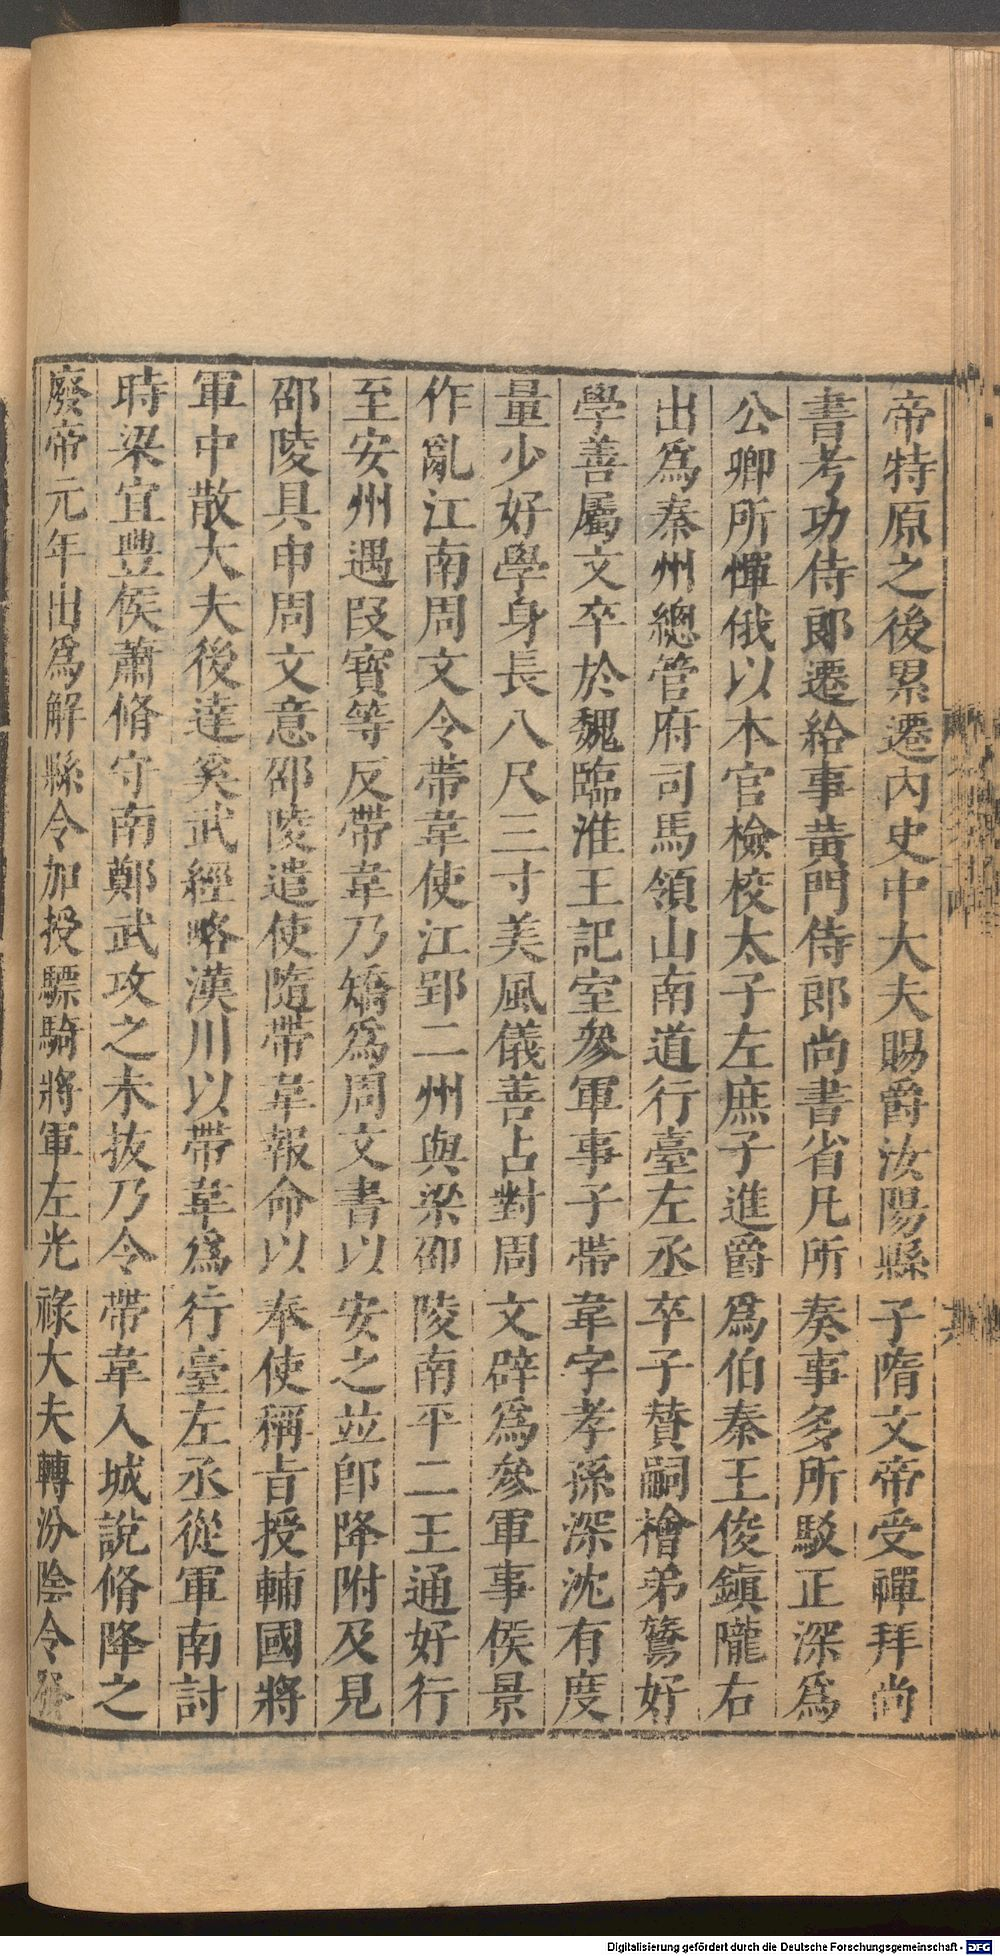 帝特原之後累遷內史中大夫賜爵汝陽縣子隋文帝受禪拜尚
書考功侍郎遷給事黃門侍郎尚書省凡所奏事多所駁正深爲
公卿所憚俄以木官檢校太子左庶子進爵爲伯秦王俊鎮隴右
出爲秦州總管府司馬領山南道行臺左丞卒子賛嗣檜弟鷟好
學善屬文卒於魏臨淮王記室參軍事子帶韋字孝孫深沈有度
量少好學身長八尺三寸美風儀善占對周文辟爲參軍事侯景
作亂江南周文令帶韋使江郢二州與梁邵陵南平二王通好行
至安州遇段寶等反帶韋乃矯爲周文書以安之並卽降附及見
邵陵具申周文意邵陵遣使隨帶韋報命以奉使稱旨授輔國將
軍中散大夫後達奚武經略漢川以帶韋爲行臺左丞從軍南討
時梁宜豐侯蕭脩守南鄭武攻之未抜乃令帶韋入城說脩降之
廢帝元年出爲解縣令加授驃騎將軍左光祿大夫轉汾陰令發
Digitalisierung gefördert durch die Deutsche Forschungsgemeinschaft - DFG